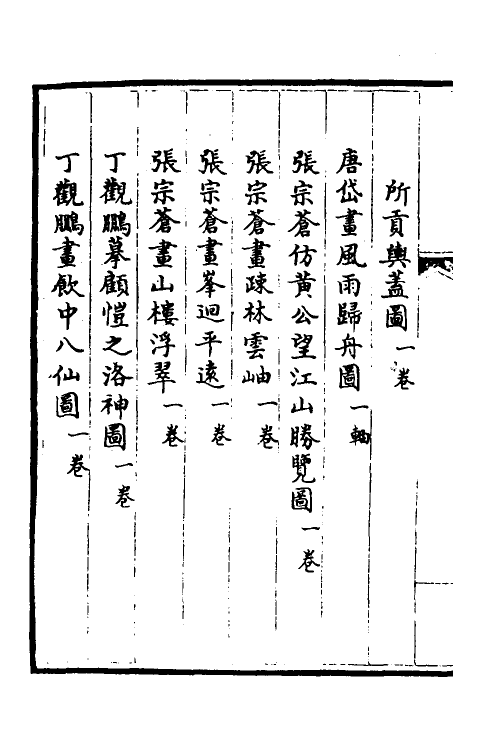 所貢輿蓋圖一卷
唐岱畫風雨歸舟圖一軸
張宗蒼仿黃公望江山勝覽圖一卷
張宗蒼畫疎林雲岫一卷
張宗蒼畫峯迴平遠一卷
張宗蒼畫山樓浮翠一卷
丁觀鵬摹顧愷之洛神圖一卷
丁觀鵬畫飲中八仙圖一卷